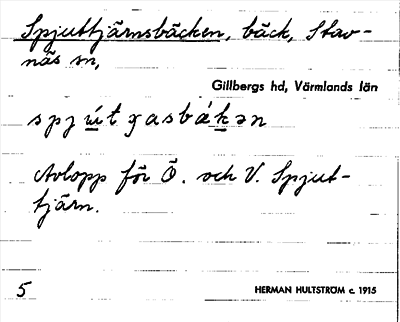 Spjuttjärnsbäcken, bäck, Stav-
näs sn,
Gillbergs hd, Värmlands län
Avlopp för Ö. och V. Spjut-
tjärn.
5 HERMAN HULTSTRÖM c. 1915